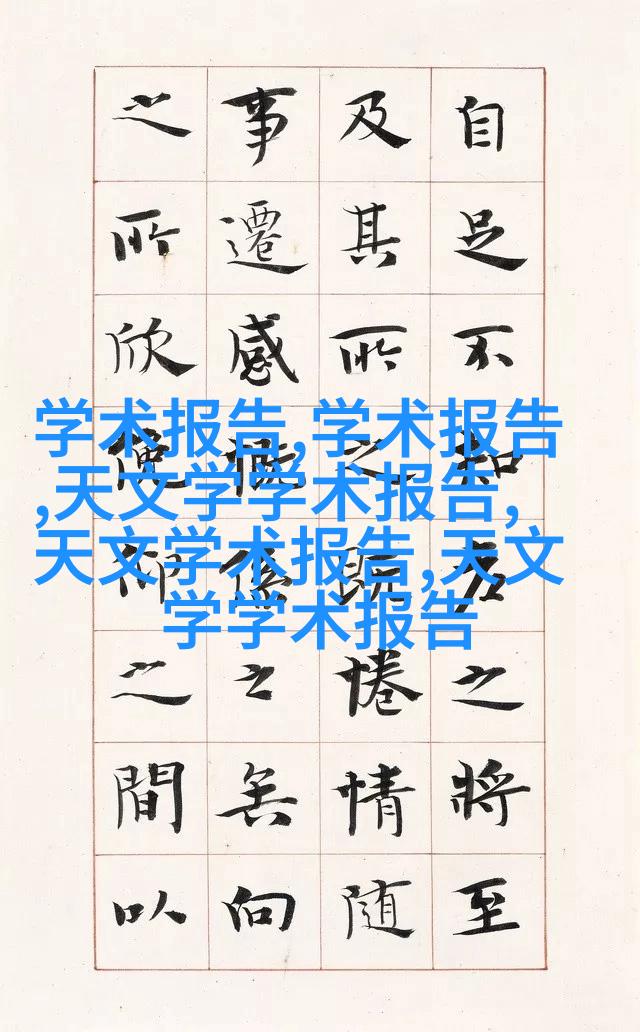 学术报告,学术报告
,天文学学术报告,
天文学术报告,天文
学学术报告
自足不知老之將至
及其所之既惓情随
事遷感慨係之矣向
之所欣俛仰之間以